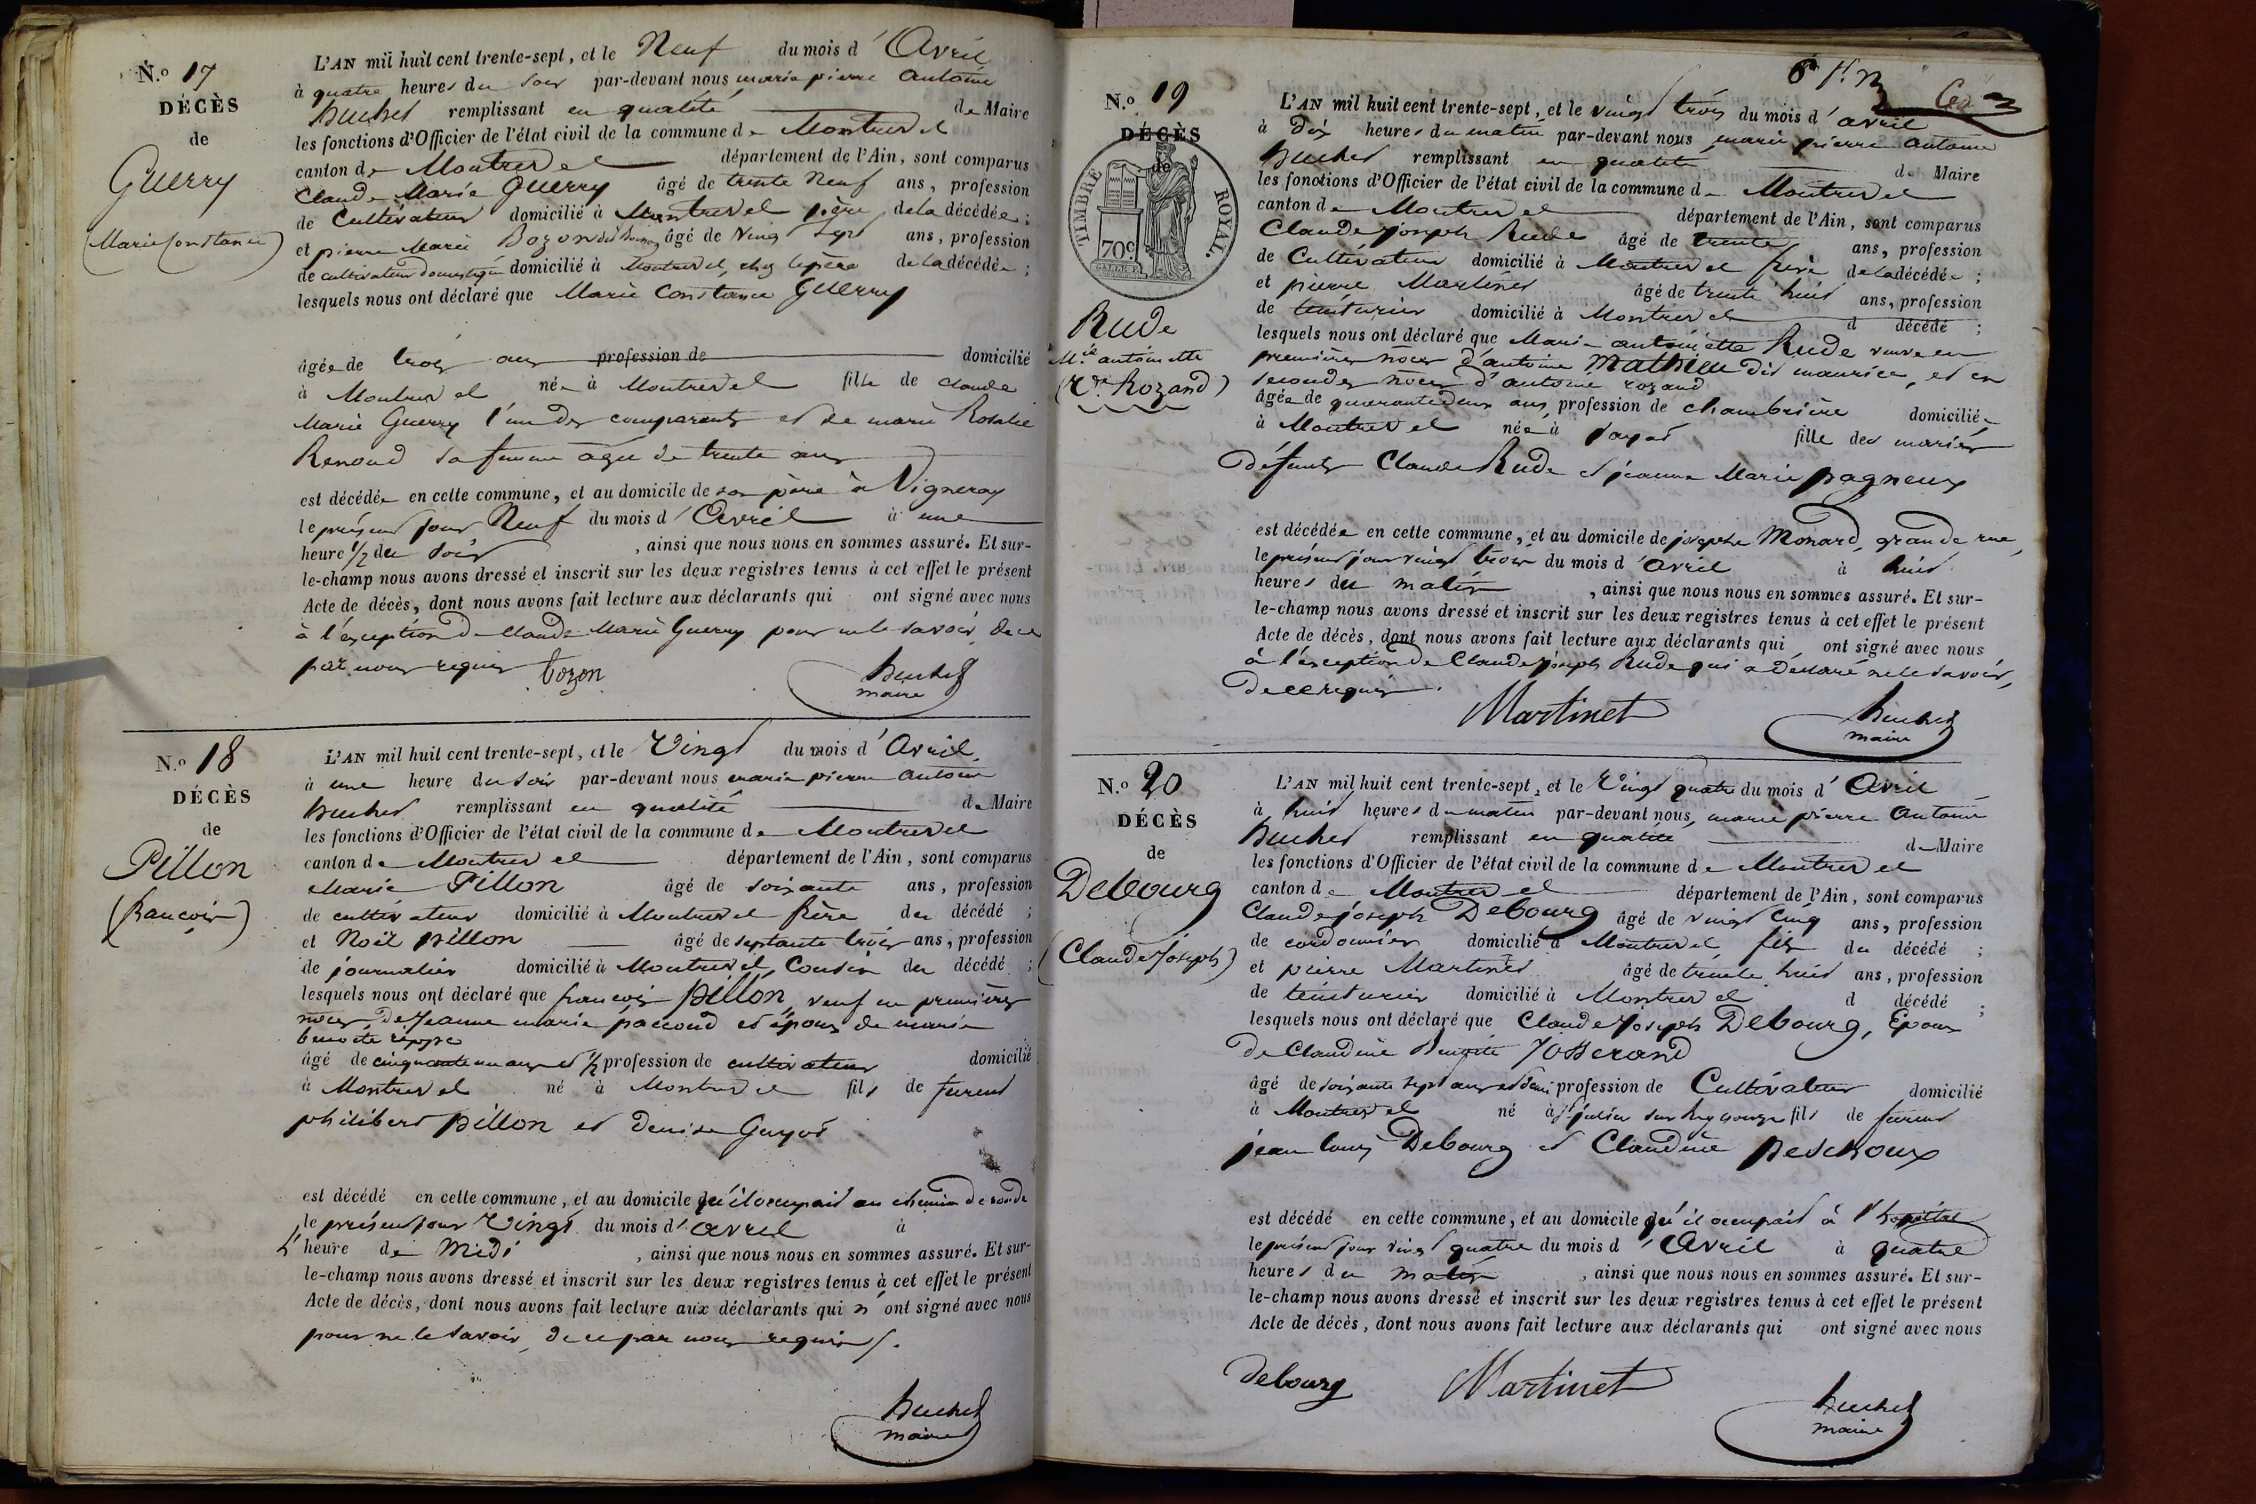 N.º 17
DÉCÈS
de
Guerry
(Marie Constance)
L'AN mil huit cent trente-sept, et le Neuf du mois d'Avril
à quatre heures du soir par-devant nous marie pierre antoine
huchet remplissant en qualité de Maire
les fonctions d'Officier de l'état civil de la commune de Montrevel
canton de Montrevel département de l'Ain, sont comparus
Claude Marie Guerry âgé de trente Neuf ans, profession
de Cultivateur domicilié à Montrevel père de la décédée ;
et pierre Marie Bozon âgé de vingt sept ans, profession
de cultivateur domestique domicilié à Montrevel, chez le père de la décédée ;
lesquels nous ont déclaré que Marie Constance Guerry
âgée de trois ans profession de domicilié
à Montrevel née à Montrevel fille de claude
Marie Guerry l'un des comparants et de marie Rosalie
Renoud sa femme agée de trente ans
est décédée en cette commune, et au domicile de son père à Vigneray
le présent jour Neuf du mois d'Avril à une
heure 1/2 du soir , ainsi que nous nous en sommes assuré. Et sur-
le-champ nous avons dressé et inscrit sur les deux registres tenus à cet effet le présent
Acte de décès, dont nous avons fait lecture aux déclarants qui ont signé avec nous
à l'exception de Claude Marie Guerry pour ne le savoir de ce
par nous requis bozon
huchet
maire
N.º 18
DÉCÈS
de
Pillon
(françois)
L'AN mil huit cent trente-sept, et le Vingt du mois d'Avril
à une heure du soir par-devant nous marie pierre antoine
huchet remplissant en qualité de Maire
les fonctions d'Officier de l'état civil de la commune de Montrevel
canton de Montrevel département de l'Ain, sont comparus
Marie Pillon âgé de soixante ans, profession
de cultivateur domicilié à Montrevel frère du décédé ;
et Noël pillon âgé de septante trois ans, profession
de journalier domicilié à Montrevel Cousin du décédé ;
lesquels nous ont déclaré que françois pillon, veuf en premières
noces De Jeanne marie paccoud et époux de marie
benoite
âgé de cinquante un ans et 1/2 profession de cultivateur domicilié
à Montrevel né à Montrevel fils de furent
philibert pillon et Denise Guyot
est décédé en cette commune, et au domicile qu'il occupait au chemin de ronde
le présent jour Vingt du mois d'avril à
l'heure de Midi , ainsi que nous nous en sommes assuré. Et sur-
le-champ nous avons dressé et inscrit sur les deux registres tenus à cet effet le présent
Acte de décès, dont nous avons fait lecture aux déclarants qui n'ont signé avec nous
pour ne le savoir de ce par nous requis /.
huchet
maire
N.º 19
DÉCÈS
de
TIMBRE ROYAL.
70c.
Rude
M.ie antoinette
(V.ve Rozand)
L'AN mil huit cent trente-sept, et le vingt trois du mois d'avril
à Dix heures du matin par-devant nous marie pierre antoine
huchet remplissant en qualité de Maire
les fonctions d'Officier de l'état civil de la commune de Montrevel
canton de Montrevel département de l'Ain, sont comparus
Claude joseph Rude âgé de trente ans, profession
de Cultivateur domicilié à Montrevel frère de la décédée ;
et pierre Martinet âgé de trente huit ans, profession
de teinturier domicilié à Montrevel d décédé ;
lesquels nous ont déclaré que Marie antoinette Rude veuve en
premières noces d'antoine Mathieu dit maurice, et en
secondes noces d'antoine rozand
âgée de quarante deux ans profession de chambrière domiciliée
à Montrevel née à fille des mariés
défunts Claude Rude et jeanne Marie pagneux
est décédée en cette commune, et au domicile de josephe Monard, grande rue,
le présent jour vingt trois du mois d'avril à huit
heures du matin , ainsi que nous nous en sommes assuré. Et sur-
le-champ nous avons dressé et inscrit sur les deux registres tenus à cet effet le présent
Acte de décès, dont nous avons fait lecture aux déclarants qui ont signé avec nous
à l'exception de Claude joseph Rude qui a déclaré ne le savoir,
de ce requis.
Martinet
huchet
maire
N.º 20
DÉCÈS
de
Debourg
(Claude Joseph)
L'AN mil huit cent trente-sept, et le Vingt quatre du mois d'Avril
à huit heures du matin par-devant nous, marie pierre Antoine
huchet remplissant en qualité de Maire
les fonctions d'Officier de l'état civil de la commune de Montrevel
canton de Montrevel département de l'Ain, sont comparus
Claude joseph Debourg âgé de vingt cinq ans, profession
de cordonnier domicilié à Montrevel fils du décédé ;
et pierre Martinet âgé de trente huit ans, profession
de teinturier domicilié à Montrevel d décédé ;
lesquels nous ont déclaré que Claude Joseph Debourg, Epoux
de Claudine Benoite Josserand
âgé de soixante sept ans et demi profession de Cultivateur domicilié
à Montrevel né à St julien sur Reyssouze fils de furent
jean louis Debourg et Claudine peschoux
est décédé en cette commune, et au domicile qu'il occupait à l'hopital
le présent jour vingt quatre du mois d'Avril à quatre
heures du matin , ainsi que nous nous en sommes assuré. Et sur-
le-champ nous avons dressé et inscrit sur les deux registres tenus à cet effet le présent
Acte de décès, dont nous avons fait lecture aux déclarants qui ont signé avec nous
debourg Martinet
huchet
maire